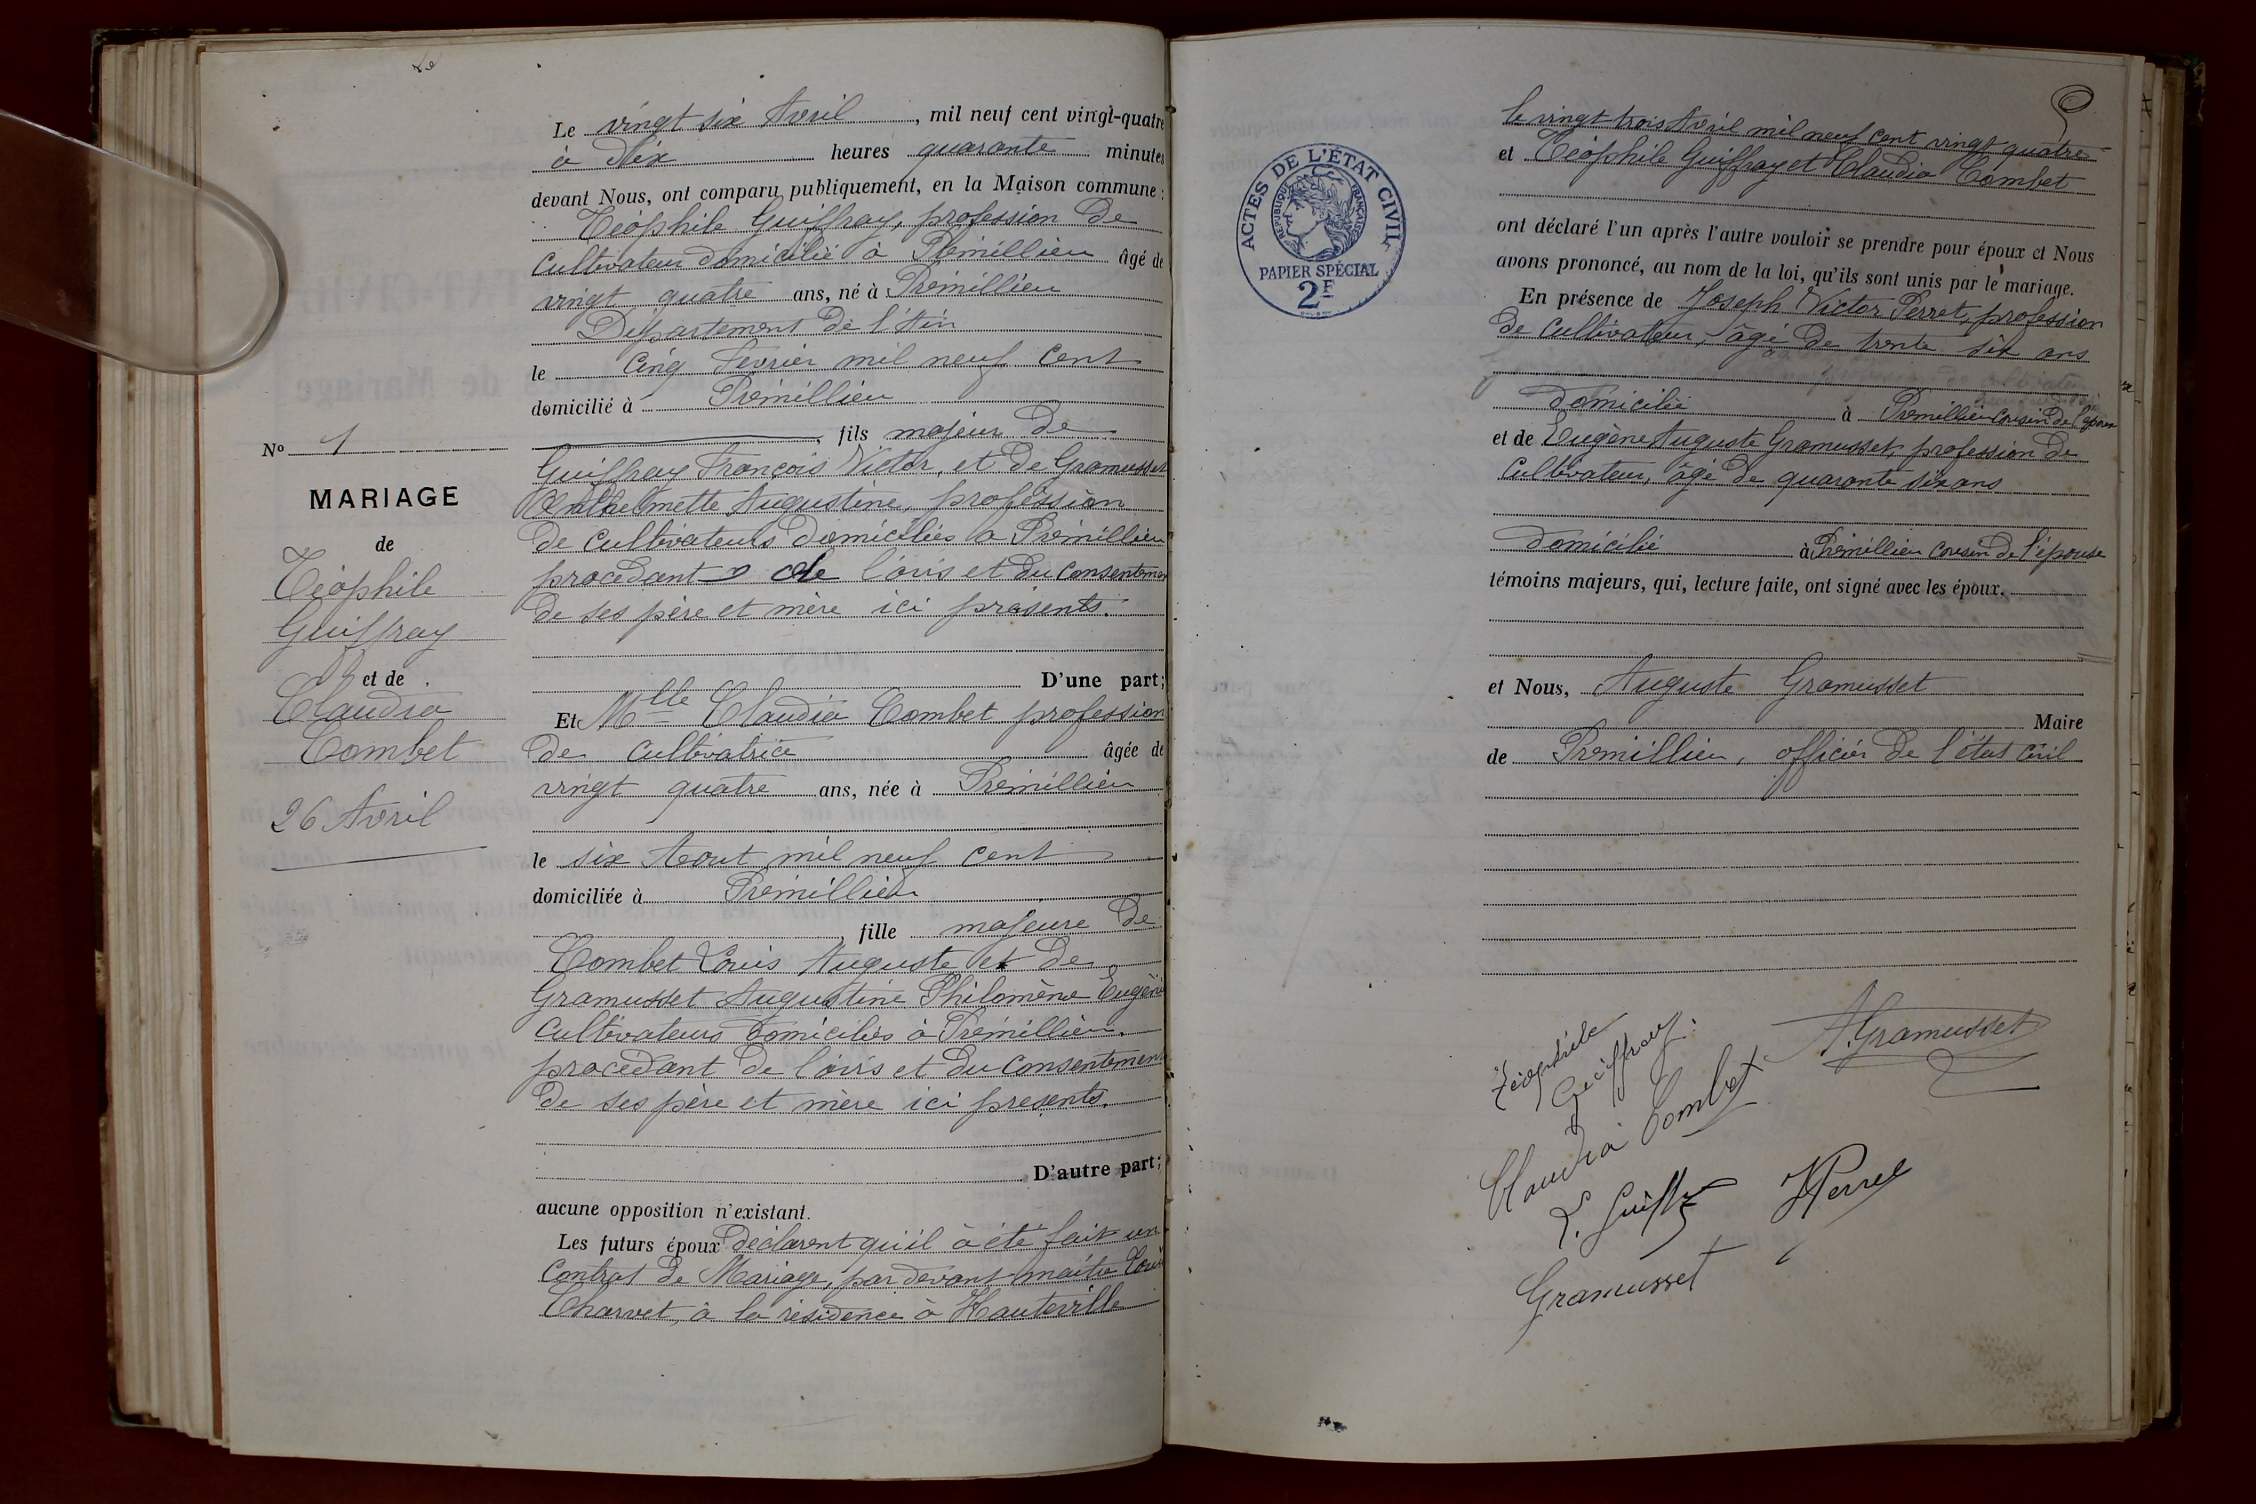 Le vingt six Avril, mil neuf cent vingt-quatre
à Dix heures quarante minutes
devant Nous, ont comparu publiquement, en la Maison commune :
Téophile Guiffray, profession de
cultivateur domicilié à Prémillieu âgé de
vingt quatre ans, né à Prémillieu
Département de l'Ain
le cinq Février mil neuf cent
domicilié à Prémillieu
, fils majeur de
Guiffray François Victor, et de Gramusset
Anthelmette Augustine, profession
de cultivateurs domiciliés à Prémillieu
procédant de l'avis et du consentement
de ses père et mère ici présents.
D'une part ;
Et Mlle Claudia Combet profession
de cultivatrice âgée de
vingt quatre ans, née à Prémillieu
le six Aout mil neuf cent
domiciliée à Prémillieu
, fille majeure de
Combet Louis Auguste et de
Gramusset Augustine Philomène Eugénie
cultivateurs domiciliés à Prémillieu.
procédant de l'avis et du consentement
de ses père et mère ici présents.
D'autre part ;
aucune opposition n'existant.
Les futurs époux déclarent qu'il à été fait un
contrat de Mariage, par devant maitre Louis
Charvet, à la résidence à Hauteville
No 1
MARIAGE
de
Téophile
Guiffray
et de
Claudia
Combet
26 Avril
ACTES DE L'ÉTAT CIVIL
REPUBLIQUE FRANÇAISE
PAPIER SPÉCIAL
2F
le vingt trois Avril mil neuf cent vingt quatre
et Téophile Guiffray et Claudia Combet
ont déclaré l'un après l'autre vouloir se prendre pour époux et Nous
avons prononcé, au nom de la loi, qu'ils sont unis par le mariage.
En présence de Joseph Victor Perret, profession
de cultivateur, âgé de trente six ans
domicilié à Prémillieu cousin de l'époux
et de Eugène Auguste Gramusset, profession de
cultivateur, âgé de quarante six ans
domicilié à Prémillieu cousin de l'épouse
témoins majeurs, qui, lecture faite, ont signé avec les époux.
et Nous, Auguste Gramusset
Maire
de Prémillieu, officier de l'état civil
Téophile
Guiffray
A. Gramusset
Claudia Combet
J Perret
Gramusset